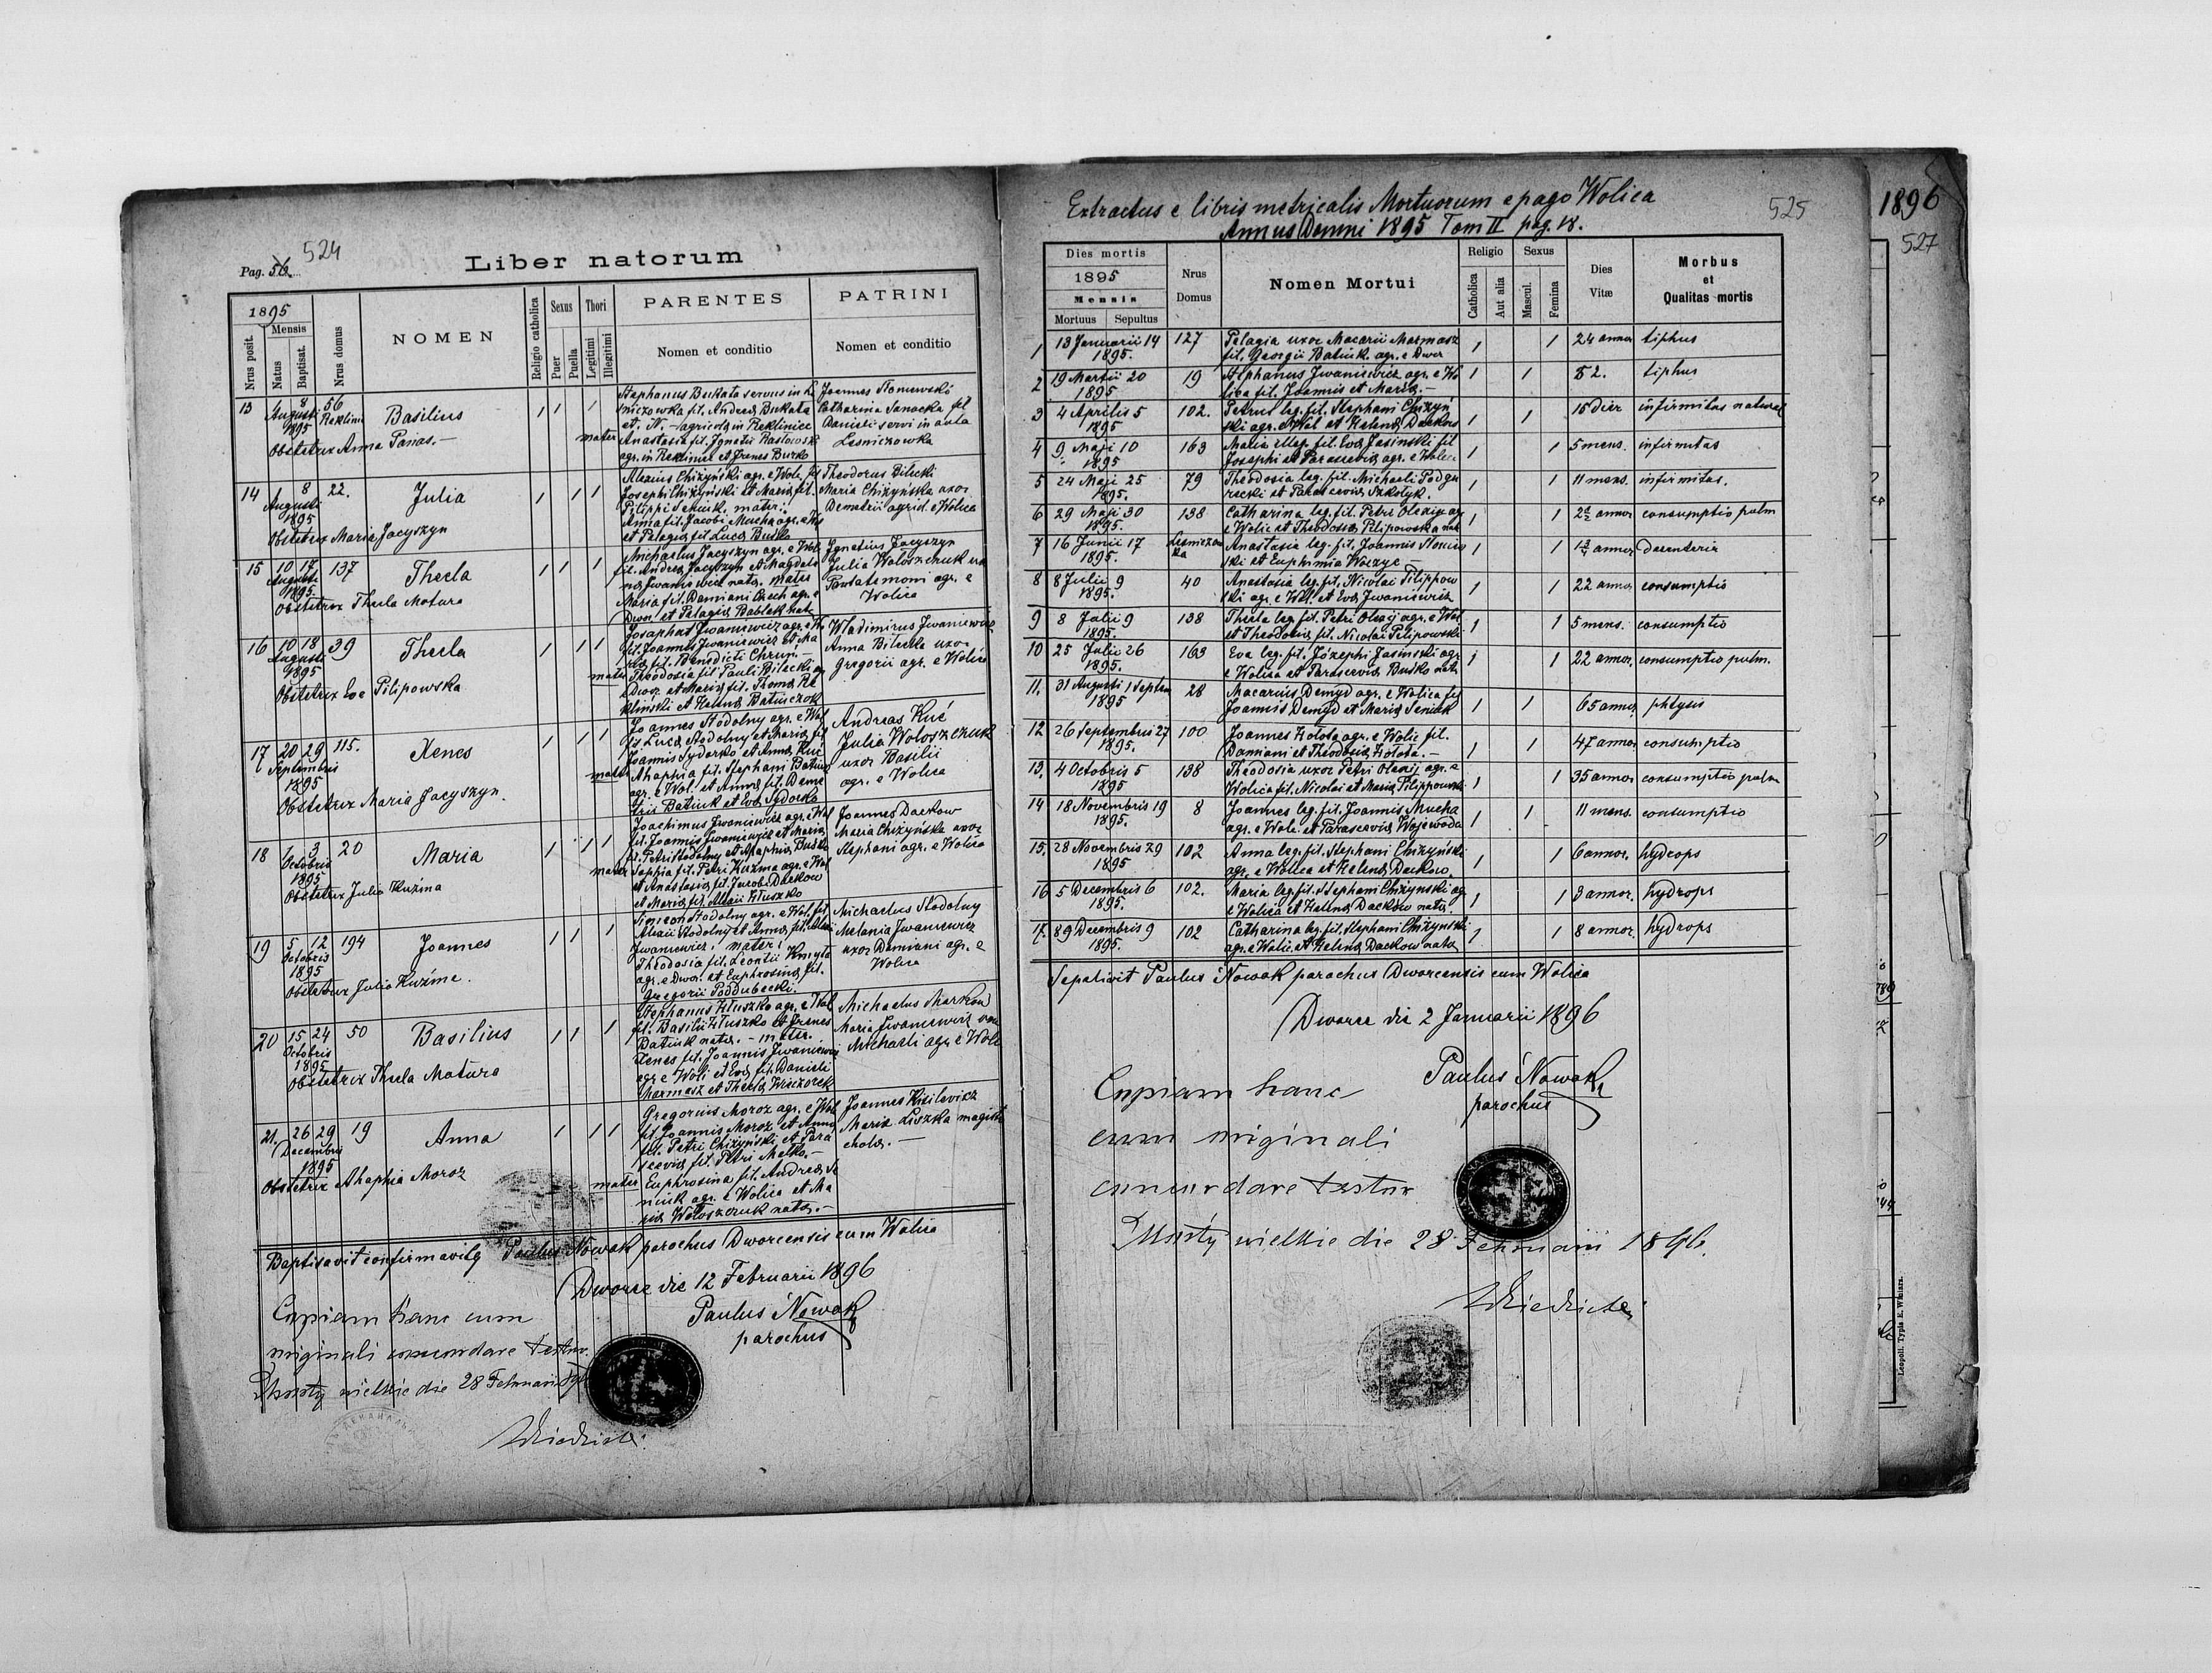 Pag. 56. 524
Liber natorum
1895
Mensis
Nrus posit.
Natus
Baptisat.
Nrus domus
NOMEN
Religio catholica
Sexus
Puer
Puella
Thori
Legitimi
Illegitimi
PARENTES
Nomen et conditio
PATRINI
Nomen et conditio
13 8 56 Basilius 1 1 1
Augusti Reklini
1895
Obstetrix Anna Panas. —
Stephanus Bukata servus in L
sniczowka fil. Andreæ Bukata
et. A. — agricolæ in Reklinice
mater Anastasia fil. Ignatii Kaslowski
agr. in Reklinice et Irenes Burko
Joannes Stoniewski
Catharina Sanocka fil
Danieli servi in aula
Lesniczowka
14 8 22. Julia 1 1 1
Augusti
1895
Obstetrix Maria Jacyszyn
Alexius Chizyński agr. e Wole. fil
Josephi Chizyński et Mariæ fil.
Pilippi Seniuk. mater:
Anna fil. Jacobi Mucha agr. e Wo
et Pelagiæ fil Lucæ Busko
Theodorus Bilecki
Maria Chizyńska uxor
Demetrii agricol. e Wolica
15 10 17 137 Thecla 1 1 1
Augusti
1895.
Obstetrix Thecla Matura
Michaelus Jacyszyn agr. e Wol.
fil. Andreæ Jacyszyn et Magdale
næ Iwaniewicz natæ. mater
Maria fil. Damiani Czech agr. e
Dwor. et Pelagiæ Bablak natæ
Ignatius Jacyszyn
Julia Woloszczuk ux
Pantalemoni agr. e
Wolica
16 10 18 39 Thecla 1 1 1
Augusti
1895
Obstetrix Eva Pilipowska
Josaphat Iwaniewicz agr. e Wo
fil. Joannes Iwaniewicz et Ma
riæ fil. Benedicti Chrun. —
mater Theodosia fil Pauli Bilecki ag
e Dwor. et Mariæ fil. Thomæ Re
klinski et Helenæ Batiuczok
Wladimirus Iwaniewicz
Anna Bilecka uxor
Gregorii agr. e Wolica
17 20 29 115. Xenes 1 1 1
Septembris
1895
Obstetrix Maria Jacyszyn.
Joannes Stodolny agr. e Wol
fil Lucæ Stodolny et Mariæ fil
Joannis Sydorko et Annæ Kuc
mater Ahaphia fil. Stephani Batiuk
agr. e Wol. et Annæ fil. Deme
trii Batiuk et Evæ Sydorko
Andreas Kuć
Julia Woloszczuk
uxor Basilii
agr. e Wolica
18 1 3 20 Maria 1 1 1
Octobris
1895
Obstetrix Julia Kuźma
Joachimus Iwaniewicz agr. e Wol
fil. Joannis Iwaniewicz et Mariæ
fil. Petri Stodolny et Ahaphiæ Busko
mater Sophia fil. Petri Kuzma agr. e Wol
et Anastasiæ fil. Jacobi Dackow
et Mariæ fil. Alexii Hluszko
Joannes Dackow
Maria Chizyńska uxor
Stephani agr. e Wolica
19 5 12 194 Joannes 1 1 1
Octobris
1895
Obstetrix Julia Kuźma.
Simeon Stodolny agr. e Wol. fil.
Alexii Stodolny et Annæ fil. Alexii
Iwaniewicz. mater:
Theodosia fil. Leontii Kmyta
agr. e Dwor. et Euphrosinæ fil.
Gregorii Poddubecki.
Michaelus Stodolny
Melania Iwaniewicz
uxor Damiani agr. e
Wolica
20 15 24 50 Basilius 1 1 1
Octobris
1895
Obstetrix Thecla Matura
Stephanus Hluszko agr. e Wol
fil. Basilii Hluszko et Irenes
Batiuk natæ. — mater.
Xenes fil. Joannis Iwaniewicz
agr. e Woli. et Evæ fil. Danieli
Marmasz et Theclæ Wieczorek
Michaelus Markow
Maria Iwaniewicz uxor
Michaeli agr. e Wole
21. 26 29 19 Anna 1 1 1
Decembris
1895
Obstetrix Ahaphia Moroz
Gregorius Moroz agr. e Wol
fil. Joannis Moroz et Annæ
fil. Petri Chizyński et Para
sceviæ fil. Petri Melko. —
mater Euphrosina fil. Andreæ Se
niuk agr. e Wolica et Ma
riæ Woloszczuk natæ. —
Joannes Kisilevicz
Maria Liszka magist
cholæ. —
Baptisavit confirmavitq Paulus Nowak parochus Dworcensis cum Wolica
Dworce die 12 Februarii 1896
Paulus Nowak
parochus
Copiam hanc cum
originali concordare testor.
Mosty wielkie die 28 Februarii 896
Extractus e libris metricalis Mortuorum e pago Wolica 525
Annus Domni 1895 Tom II pag. 18.
Dies mortis
1895
Mensis
Mortuus Sepultus
Nrus Domus
Nomen Mortui
Religio
Catholica
Aut alia
Sexus
Mascul.
Femina
Dies Vitæ
Morbus et Qualitas mortis
1 13 Januarii 14 127 Pelagia uxor Macarii Marmasz 1 1 24 annor tiphus
1895. fil. Georgii Batiuk. agr. e Dwor
2 19 Martii 20 19 Stephanus Iwaniewicz agr. e Wo 1 1 52. tiphus
1895 lica fil. Joannis et Mariæ. —
3 4 Aprilis 5 102. Petrus leg. fil. Stephani Chizyń 1 1 15 dier infirmitas natural
1895 ski agr. e Wol et Helenæ Dackow
4 9. Maji 10 163 Maria illeg. fil. Evæ Jasinski fil 1 1 5 mens. infirmitas
1895 Josephi et Parasceviæ agr. e Wolice
5 24 Maji 25 79 Theodosia leg. fil. Michaeli Podgu 1 1 11 mens. infirmitas.
1895. recki et Parasceviæ Szkolyk.
6 29 Maji 30 138 Catharina leg. fil. Petri Olexij agr 1 1 2½ annor consumptio pulm
1895. e Wolic et Theodosiæ Pilipowska nat
7 16 Junii 17 Lesniczow Anastasia leg. fil. Joannis Stoniew 1 1 1¾ annor desenteria
1895. ka ski et Euphimia Woczyc —
8 8 Julii 9 40 Anastasia leg. fil. Nicolai Filippow 1 1 22 annor consumptio
1895. ski agr. e Wol. et Evæ Iwaniewicz
9 8 Julii 9 138 Thecla leg. fil. Petri Olexij agr. e Wol 1 1 5 mens. consumptio
1895. et Theodosiæ fil. Nicolai Pilipowski
10 25 Julii 26 163 Eva leg. fil. Józephi Jasinski agr 1 1 22 annor. consumptio pulm.
1895. e Wolica et Parasceviæ Busko natæ
11. 31 Augusti 1 Septem 28 Macarius Demyd agr. e Wolica fil 1 1 65 annor phtysis
1895 Joannis Demyd et Mariæ Seniuk
12 26 Septembris 27 100 Joannes Holota agr. e Wolic fil. 1 1 47 annor consumptio
1895. Damiani et Theodosiæ Holota. —
13. 4 Octobris 5 138 Theodosia uxor Petri Olexij agr. e 1 1 35 annor consumptio pulm
1895 Wolica fil. Nicolai et Mariæ Filippowski
14 18 Novembris 19 8 Joannes leg. fil. Joannis Mucha 1 1 11 mens. consumptio
1895. agr. e Wole. et Parasceviæ Wojewoda
15. 28 Novembris 29 102 Anna leg. fil. Stephani Chizyński 1 1 6 annor. hydrops
1895 agr. e Wolica et Helenæ Dackow.
16 5 Decembris 6 102. Maria leg. fil. Stephani Chizynski ag 1 1 3 annor. hydrops
1895. e Wolica et Helenæ Dackow natæ.
17. 8 9 Decembris 9 102 Catharina leg. fil. Stephani Chizynski 1 1 8 annor. hydrops
1895. agr. e Wolic. et Helenæ Dackow natæ
Sepelivit Paulus Nowak parochus Dworcensis cum Wolica
Dworce die 2 Januarii 1896
Paulus Nowak
parochus
Copiam hanc
cum originali
concordare testor
Mosty wielkie die 28 Februarii 1896.
1896
527
Leopoli. Typis E. Winiarz.